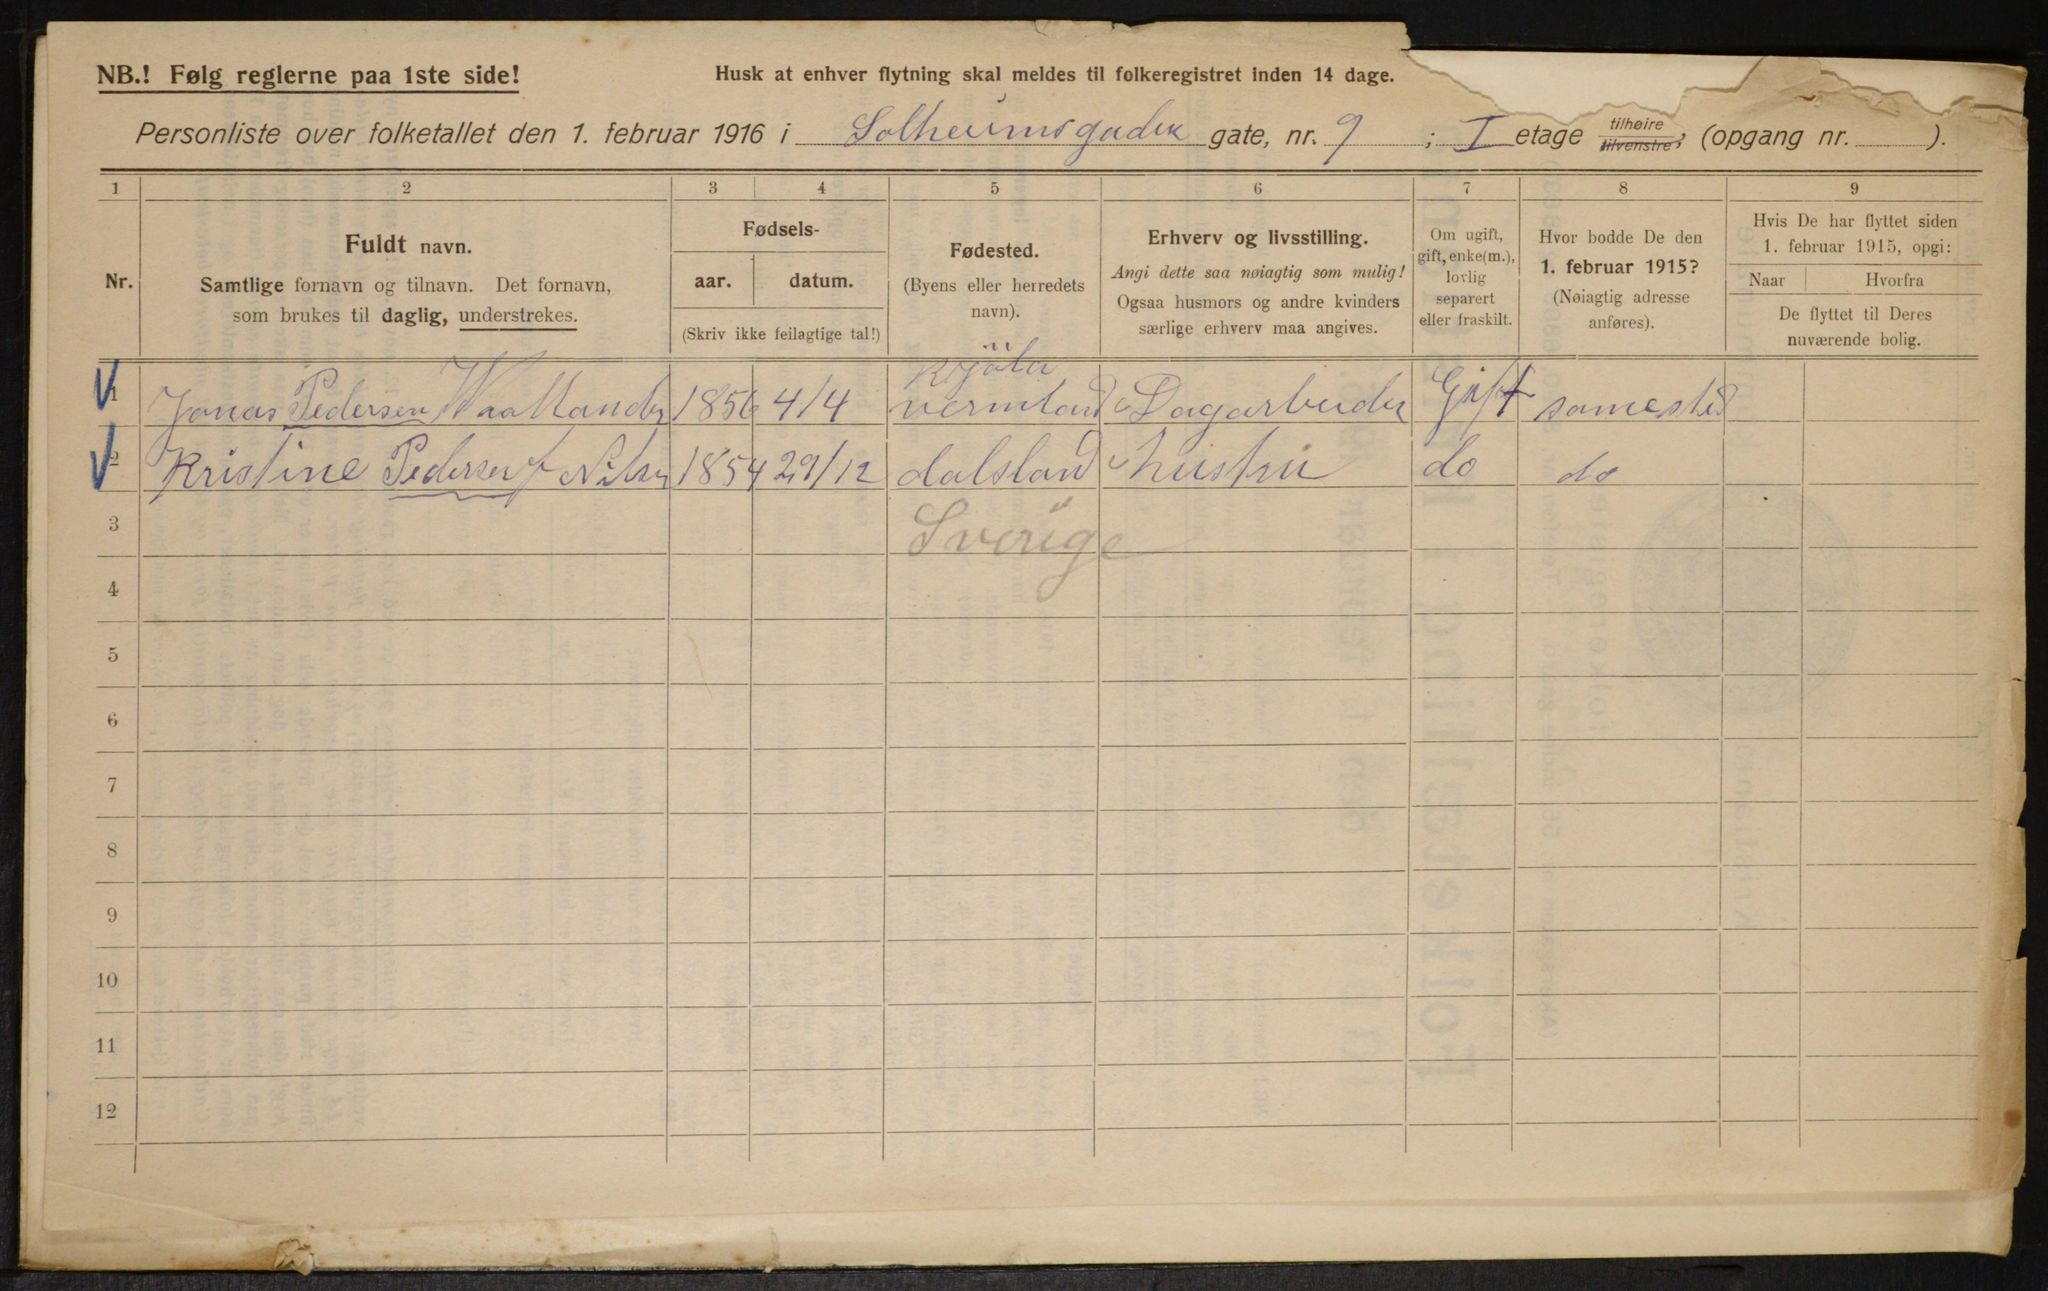 NB.! Følg reglerne paa 1ste side!
Husk at enhver flytning skal meldes til folkeregistret inden 14 dage.
Personliste over folketallet den 1. februar 1916 i Solheimsgaden gate, nr. 9 ; I etage tilhøire tilvenstre, (opgang nr. ).
1 2 3 4 5 6 7 8 9
Nr.
Fuldt navn.
Samtlige fornavn og tilnavn. Det fornavn,
som brukes til daglig, understrekes.
Fødsels-
aar. datum.
(Skriv ikke feilagtige tal!)
Fødested.
(Byens eller herredets
navn).
Erhverv og livsstilling.
Angi dette saa nøiagtig som mulig!
Ogsaa husmors og andre kvinders
særlige erhverv maa angives.
Om ugift,
gift, enke(m.),
lovlig
separert
eller fraskilt.
Hvor bodde De den
1. februar 1915?
(Nøiagtig adresse
anføres).
Hvis De har flyttet siden
1. februar 1915, opgi:
Naar Hvorfra
De flyttet til Deres
nuværende bolig.
1 Jonas Pedersen 1856 4/4 vermland Dagarbeider Gift samested
2 Kristine Pedersen f Nilsen 1854 29/12 dalsland hustru do do
3 Sverige
4
5
6
7
8
9
10
11
12